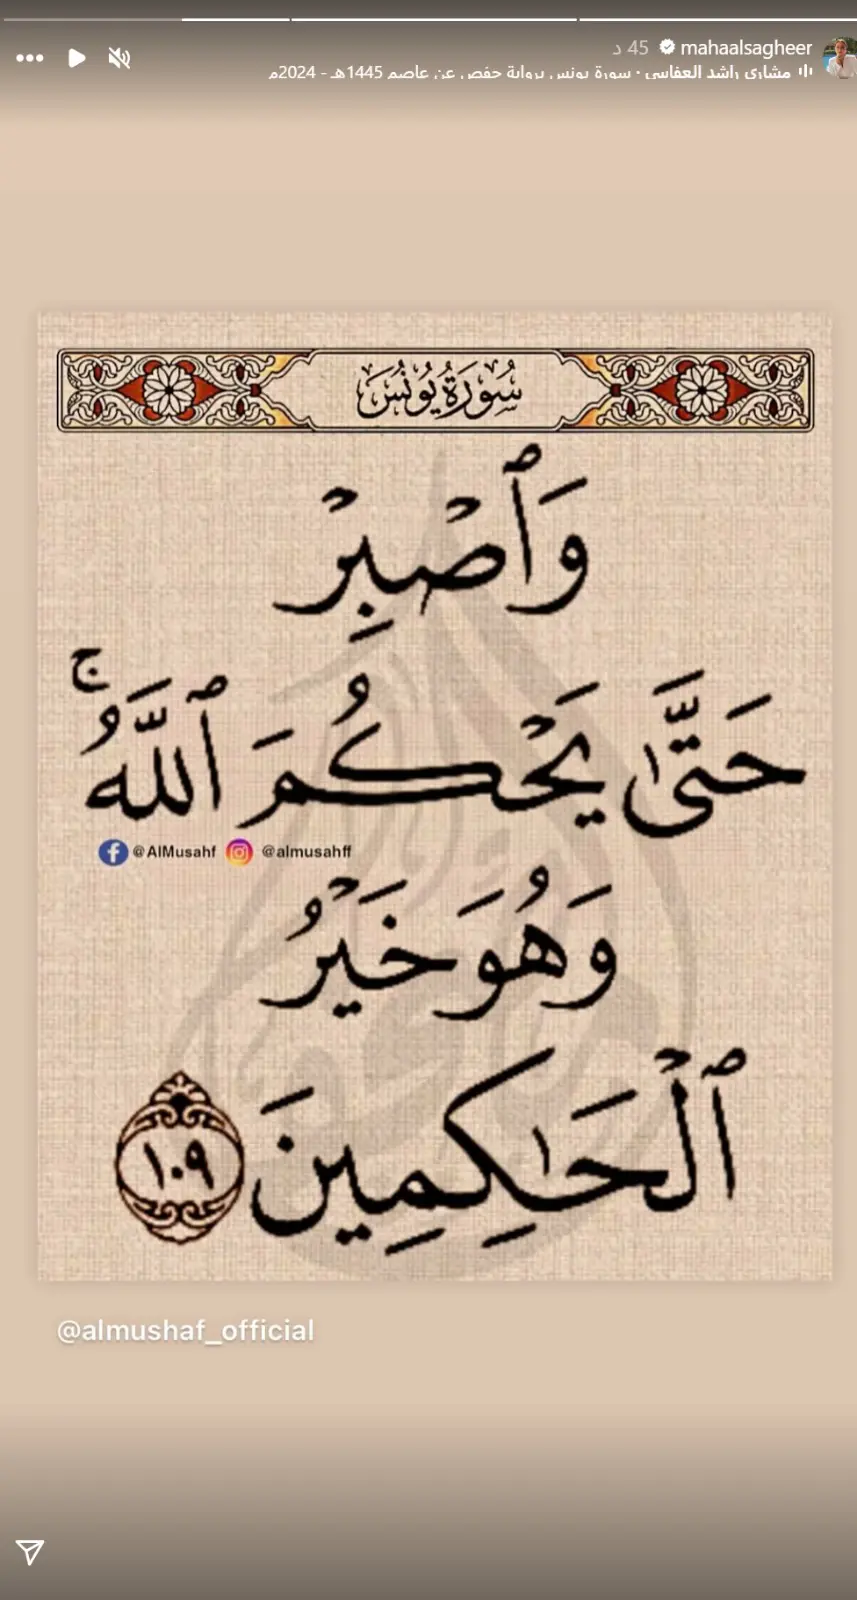 mahaalsagheer 45 د
مشاري راشد العفاسي · سورة يونس برواية حفص عن عاصم 1445هـ - 2024م
سُورَةُ يُونُسَ
وَٱصْبِرْ
حَتَّىٰ يَحْكُمَ ٱللَّهُ ۚ
@AlMusahf @almusahff
وَهُوَ خَيْرُ
ٱلْحَـٰكِمِينَ ١٠٩
@almushaf_official